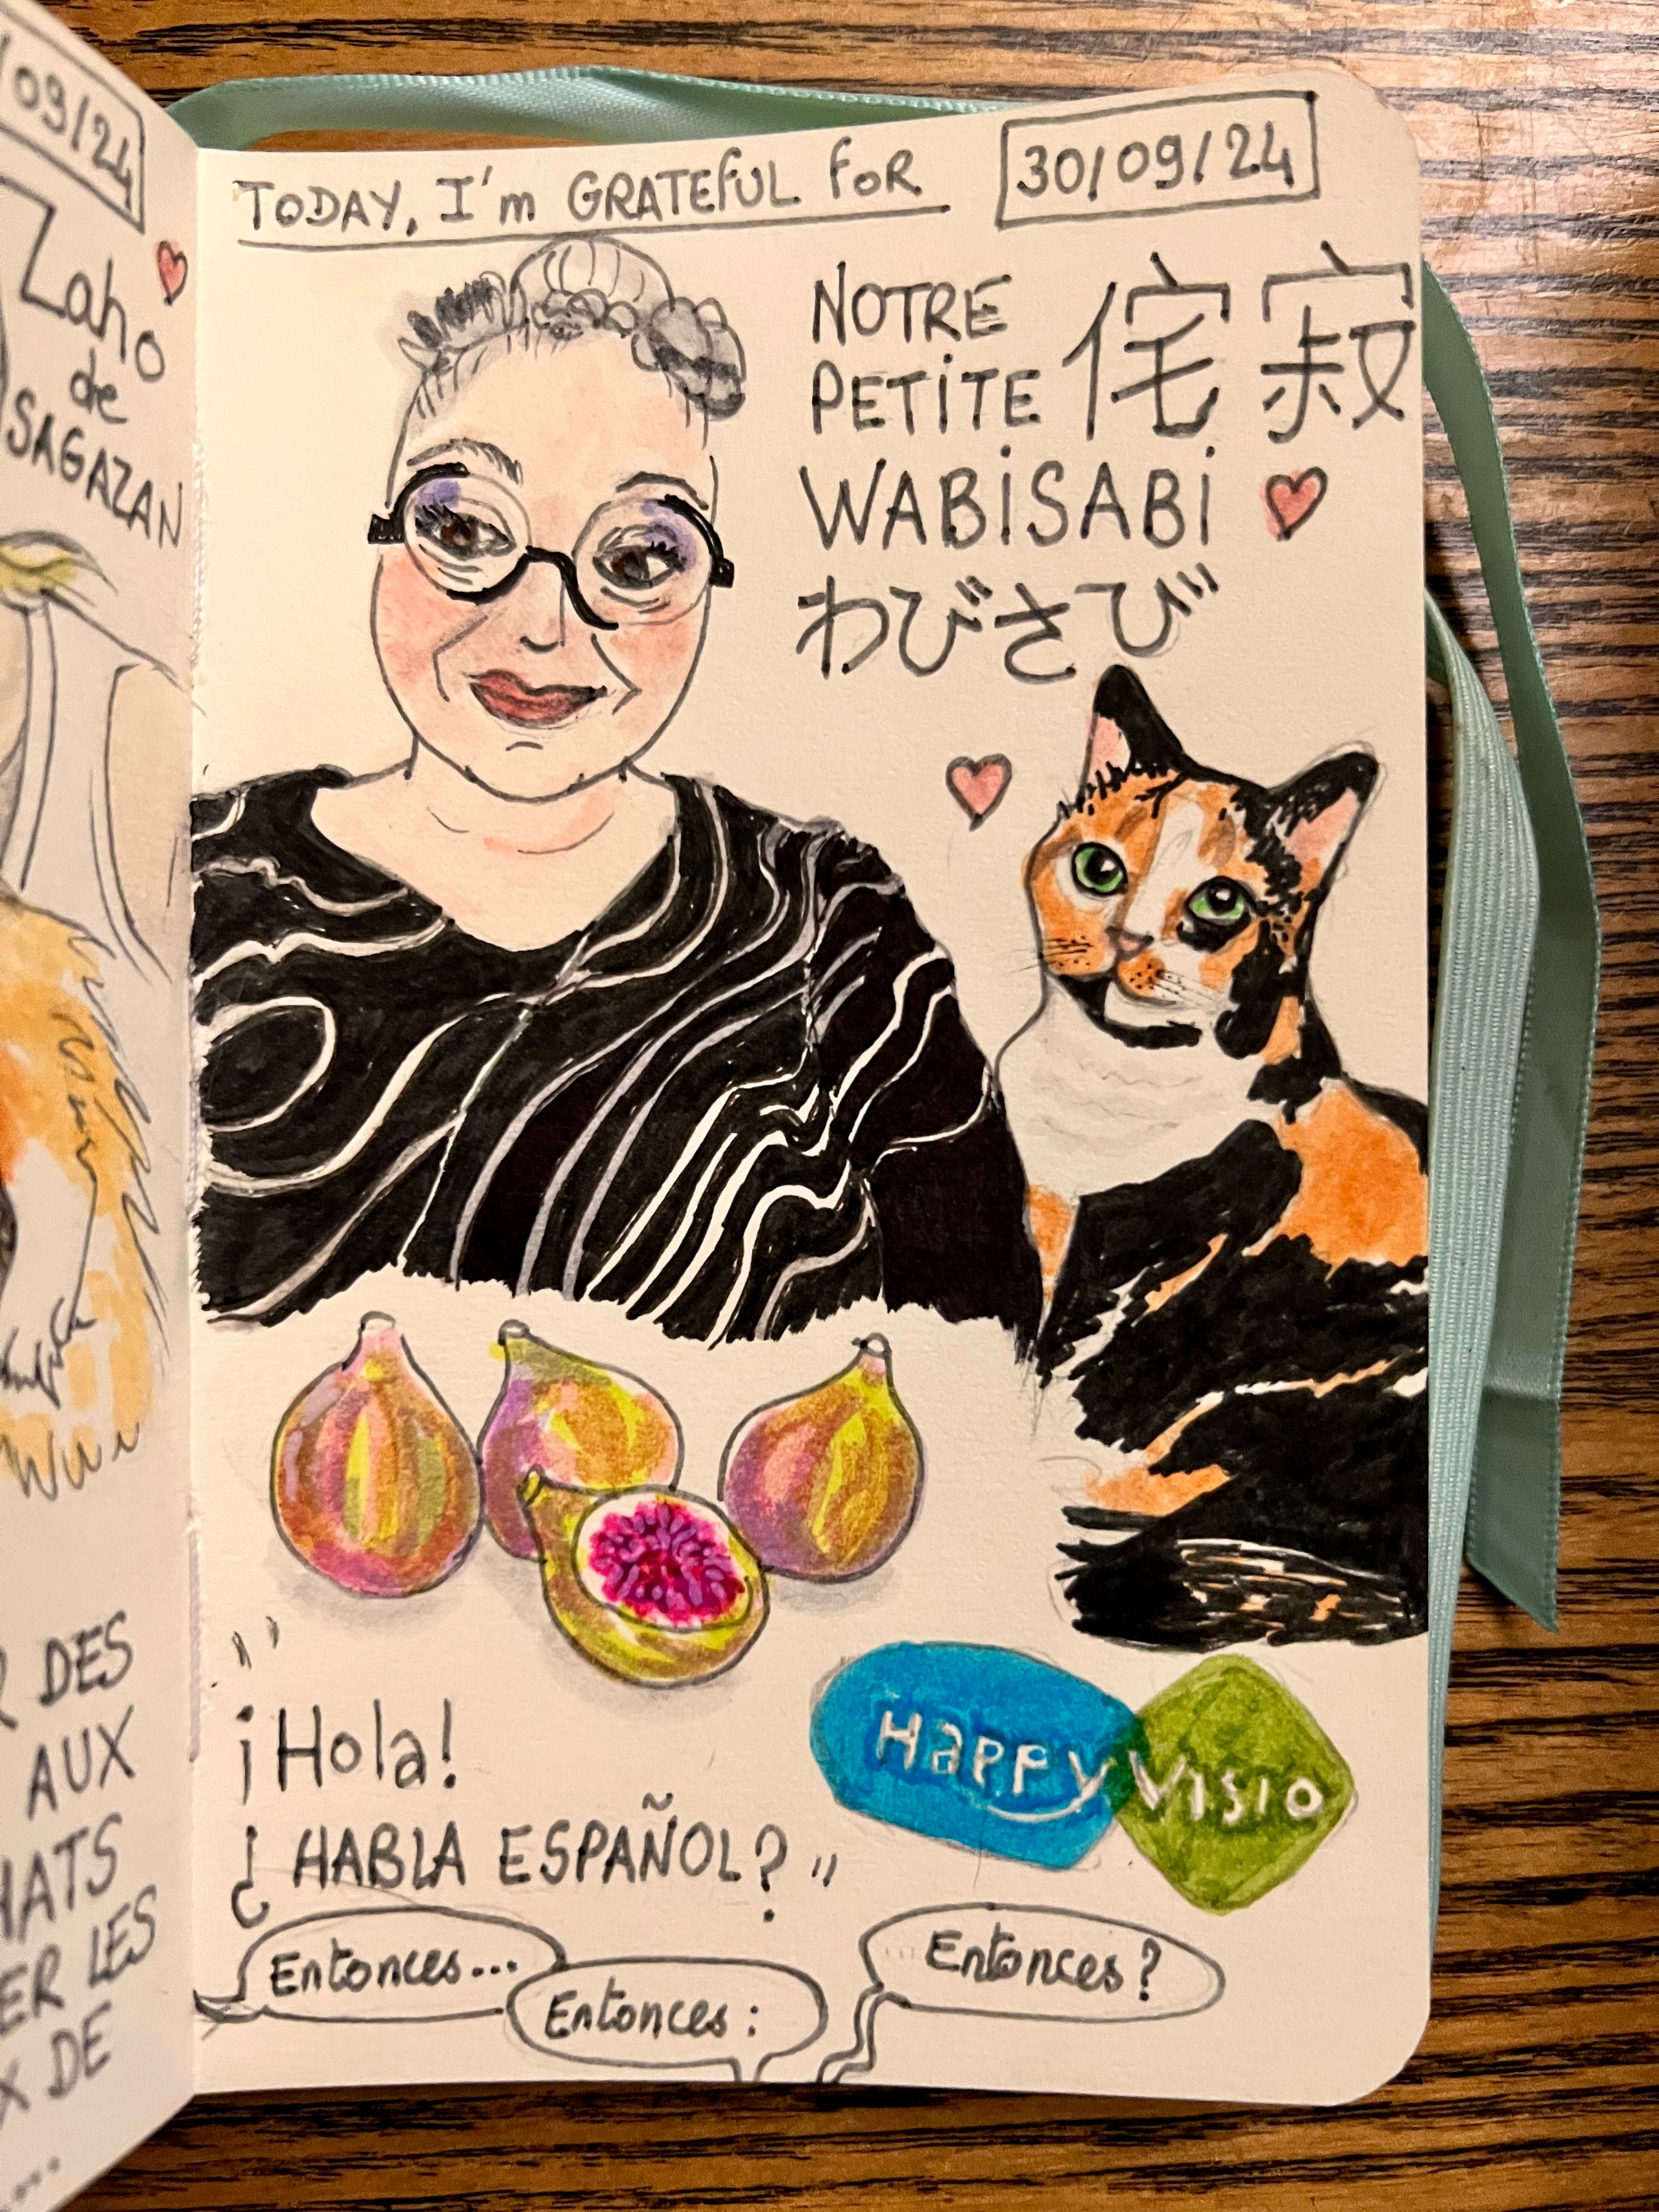 /09/24
Zaho
de
SAGAZAN
DES
AUX
HATS
ER LES
X DE
...
TODAY, I'm GRATEFUL FOR
30/09/24
NOTRE
PETITE
侘 寂
WABISABI
わびさび
"
¡Hola!
¿HABLA ESPAÑOL? "
Happy Visio
Entonces...
Entonces :
Entonces ?